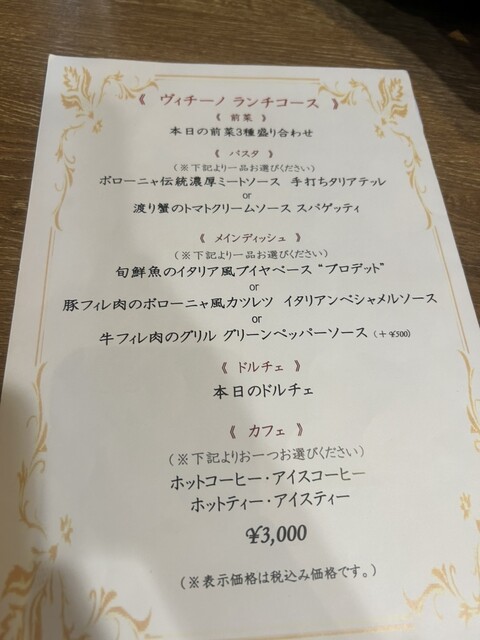 《 ヴィチーノ ランチコース 》
《 前菜 》
本日の前菜3種盛り合わせ
《 パスタ 》
(※下記より一品お選びください)
ボローニャ伝統濃厚ミートソース 手打ちタリアテッレ
or
渡り蟹のトマトクリームソース スパゲッティ
《 メインディッシュ 》
(※下記より一品お選びください)
旬鮮魚のイタリア風ブイヤベース “ブロデット”
or
豚フィレ肉のボローニャ風カツレツ イタリアンベシャメルソース
or
牛フィレ肉のグリル グリーンペッパーソース (+¥500)
《 ドルチェ 》
本日のドルチェ
《 カフェ 》
(※下記よりお一つお選びください)
ホットコーヒー・アイスコーヒー
ホットティー・アイスティー
¥3,000
(※表示価格は税込み価格です。)